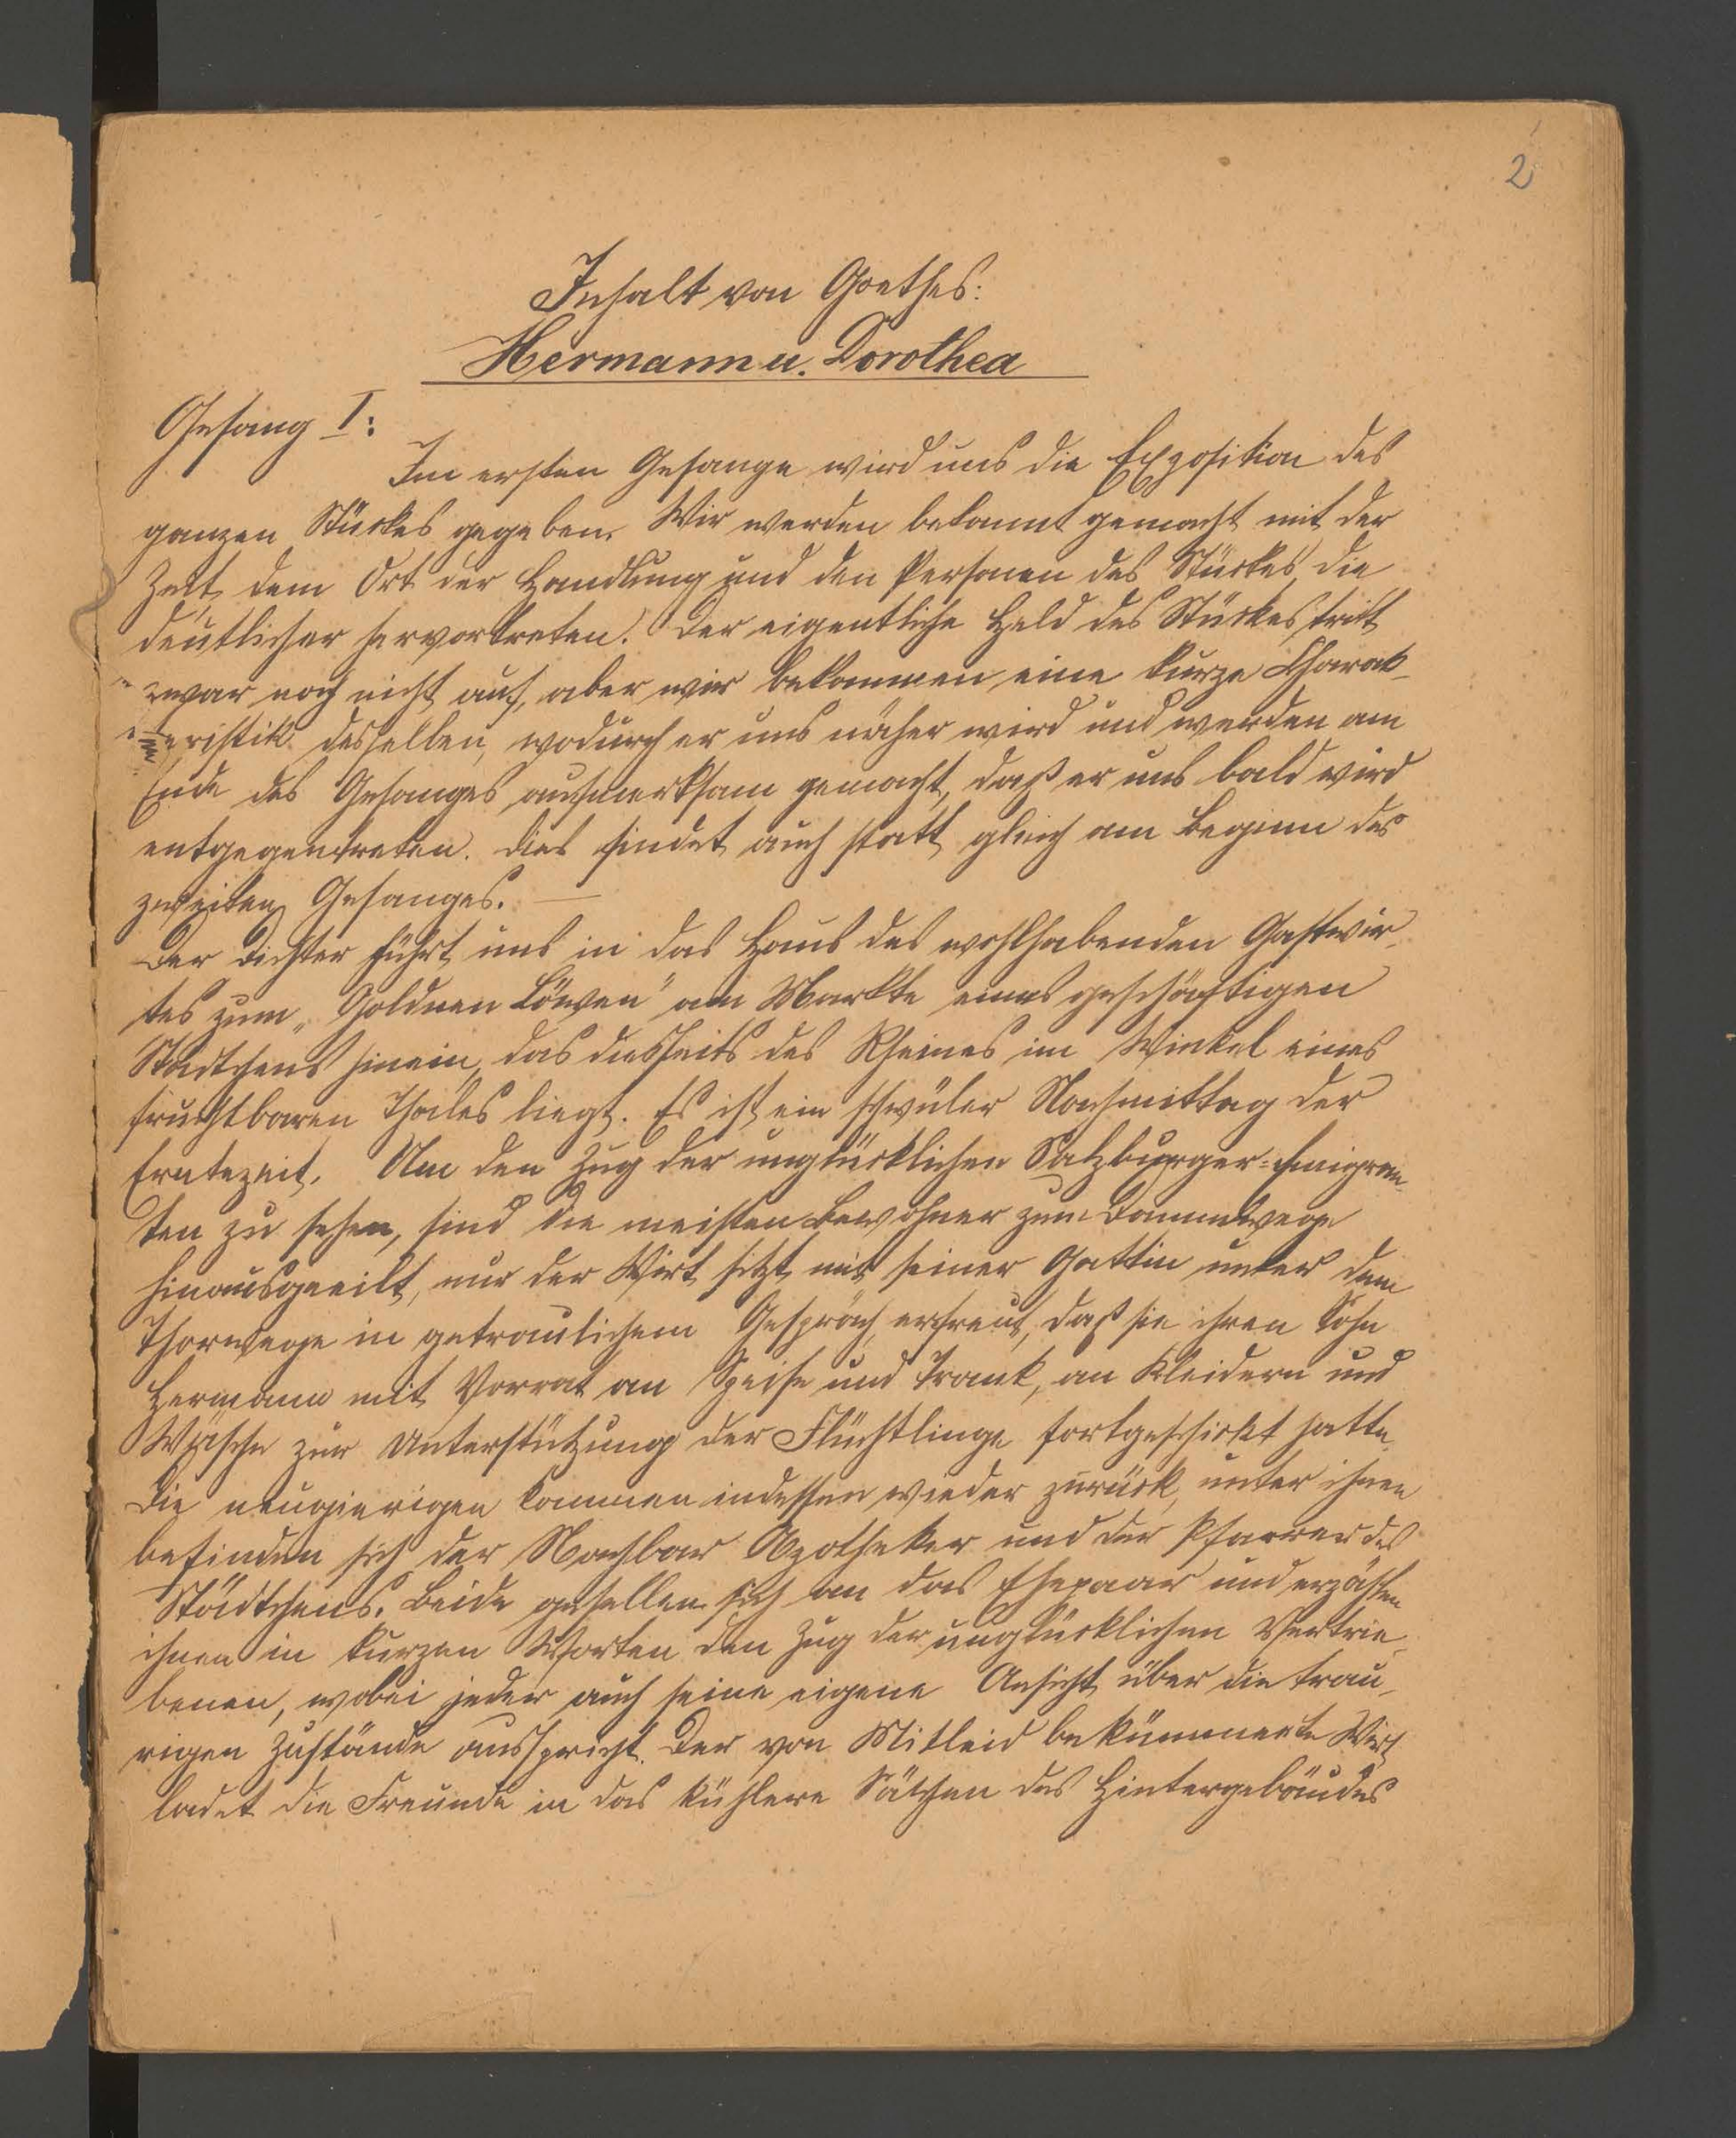 2
Inhalt von Goethes:
Hermann u. Dorothea
Gesang I:
Im ersten Gesange wird uns die Exposition des
ganzen Stückes gegeben. Wir werden bekannt gemacht mit der
Zeit, dem Ort der Handlung und den Personen des Stückes, die
deutlicher hervortreten. Der eigentliche Held des Stückes tritt
zwar noch nicht auf, aber wir bekommen eine kurze Charak-
teristik desselben, wodurch er uns näher wird und werden am
Ende des Gesanges aufmerksam gemacht, daß er uns bald wird
entgegentreten. Dies findet auch statt gleich am Beginn des
zweiten Gesanges. —
Der Dichter führt uns in das Haus des wohlhabenden Gastwir-
tes zum „Goldnen Löwen" am Markte eines geschäftigen
Städtchens hinein, das diesseits des Rheines im Winkel eines
fruchtbaren Thales liegt. Es ist ein schwüler Nachmittag der
Erntezeit. Um den Zug der unglücklichen Salzburger-Emigran-
ten zu sehen, sind die meisten Bewohner zum Dammwege
hinausgeeilt, nur der Wirt sitzt mit seiner Gattin unter dem
Thorwege in getraulichem Gespräch, erfreut, daß sie ihren Sohn
Hermann mit Vorrat an Speise und Trank, an Kleidern und
Wäsche zur Unterstützung der Flüchtlinge fortgeschickt hatte.
Die neugierigen kommen indessen wieder zurück, unter ihnen
befinden sich der Nachbar Apotheker und der Pfarrer des
Städtchens. Beide gesellen sich an das Ehepaar und erzählen
ihnen in kurzen Worten den Zug der unglücklichen Vertrie-
benen, wobei jeder auch seine eigene Ansicht über die trau-
rigen Zustände ausspricht. Der von Mitleid bekümmerte Wirt
ladet die Freunde in das kühlere Sälchen des Hintergebäudes